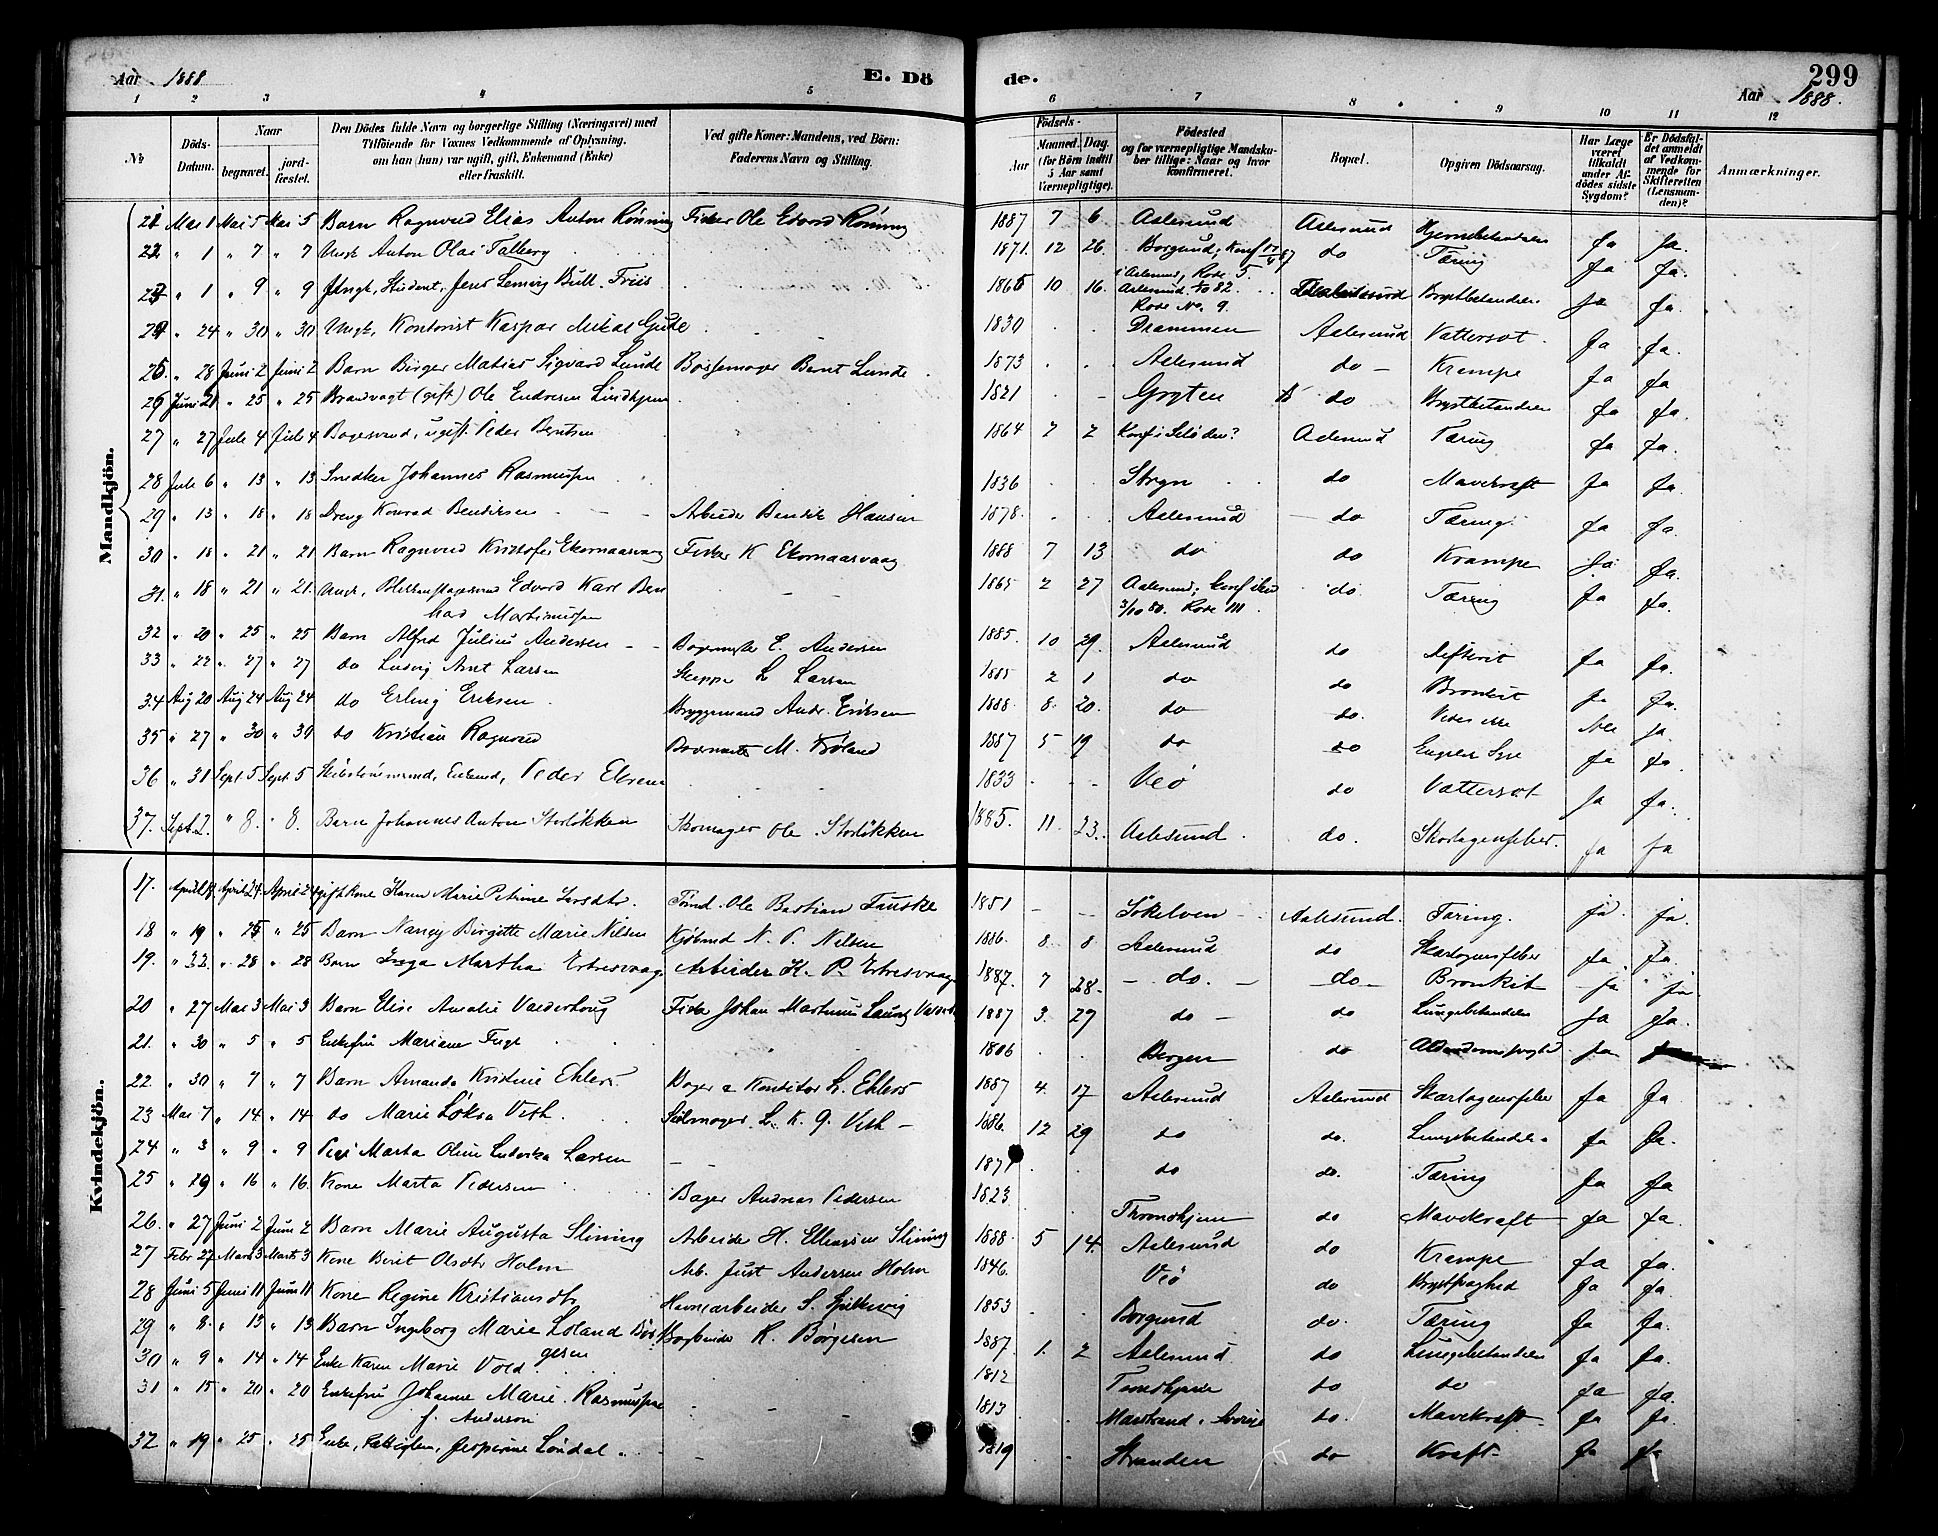 Aar 1888 E. Dö
de. Aar 1888. 299
1 2 3 4 5 6 7 8 9 10 11 12
No
Döds-Datum.
Naar
begravet.
jordfæstet.
Den Dödes fulde Navn og borgerlige Stilling (Næringsvei) med Tilföiende for Voxnes Vedkommende af Oplysning, om han (hun) var ugift, gift, Enkemand (Enke) eller fraskilt.
Ved gifte Koner: Mandens, ved Börn: Faderens Navn og Stilling.
Födsels-
Aar
Maaned.
Dag.
(for Börn indtil 5 Aar samt Værnepligtige).
Födested og for værnepligtige Mandskuber tillige: Naar og hvor konfirmeret.
Bopæl.
Opgiven Dödsaarsag.
Har Læge været tilkaldt under Afdödes sidste Sygdom?
Er Dödsfaldet anmeldt af Vedkommende for Skifteretten (Lensmanden)?
Anmærkninger.
Mandkjön.
21 Mai 1 Mai 5 Mai 5 Barn Ragnvard Elias Anton Rönning Fisker Ole Edvard Rönning 1887 7 6 Aalesund Aalesund Ja Ja.
22 " 1 " 7 " 7 Ungk. Anton Olai Talberg 1871 12 26 Borgund, Konf do Tæring Ja Ja.
23 " 1 " 9 " 9 Ungk, Student, Jens Lemvig Bull Friis 1865 10 16 Aalesund Rode No. 9 Brystbetændelse Ja Ja.
24 " 24 " 30 " 30 Ungk, Kontorist Kaspar Mikal Gude 1830 Drammen Aalesund Vattersot Ja Ja.
25. " 28 Juni 2 Juni 2 Barn Birger Matias Sigvard Lunde Bössemager Bernt Lunde 1873 Aalesund do Krampe Ja Ja
26 Juni 21 " 25 " 25 Brandvagt (gift) Ole Endresen Lindhjem 1821 Gryten do Brystbetændelse Ja Ja.
27 " 27 Juli 4 Juli 4 Bagersvend, ugift Peder Bentsen 1864 2 2 Konf i Selöden? Aalesund Tæring Ja Ja.
28 Juli 6 " 13 " 13 Snedker Johannes Rasmussen 1836 Stryn do Mavekræft Ja Ja.
29 " 13 " 18 " 18 Dreng Konrad Bendiksen Arbeider Bendik Hansen 1878. Aalesund do Tæring Ja Ja.
30 " 18 " 21 " 21 Barn Ragnvard Kristofer Ekornaasvaag Fisker K Ekornaasvaag 1888 7 13 do do Krampe Ja Ja.
31. " 18 " 21 " 21. Ungk, Edvard Karl Bernhard Martinussen 1865 2 27 Aalesund; 3/10 80. Rode III do Tæring Ja Ja.
32 " 20 " 25 " 25 Barn Alfred Julius Andersen Bagermester E. Andersen 1885. 10 29. Aalesund do Ja Ja.
33 " 22 " 27 " 27 do Ludvig Arnt Larsen Skipper L Larsen 1885 2 1 do do Bronkit Ja Ja.
34 Aug 20 Aug 24 Aug 24 do Erling Eriksen Bryggemand Andr. Eriksen 1888. 8. 20. do do. Vides ikke Nei Ja.
35 " 27 " 30 " 30 do Kristian Ragnvard M. Fröland 1887 5 19 do do Engelsk Syge Ja Ja.
36 " 31 Sept. 5 Sept. 5 Enkemd, Peder Elesen 1833 Veö do Vattersot Ja Ja.
37. Sept. 2. " 8. " 8. Barn Johannes Anton Storlökken Skomager Ole Storlökken 1885. 11. 23. Aalesund do. Skarlagensfeber. Ja Ja
Kvindekjön.
17. April 24. April 24 gift Kone Karen Marie Petrine Larsdtr. Ole Bastian Fauske 1851 Sökelven Aalesund. Tæring. ja. ja.
18 " 19 " 25 " 25 Barn Nancy Birgitte Marie Nilsen Kjöbmd N. P. Nilsen 1886. 8. 8 Aalesund do Skarlagensfeber Ja. Ja.
19. " 22. " 28 " 28 Barn Inga Martha Ertresvaag Arbeider K. P. Ertresvaag 1887. 7 28. do. do Bronkit Ja Ja.
20 " 27 Mai 3 Mai 3 Barn Elise Amalie Valderhoug Fisker Johan Martinus Valderh 1887 3. 29 do do Lungebetændelse Ja Ja.
21. " 30 " 5 " 5 Enkefru Mariane 1806 Bergen do Alderdomssvaghed Ja
22 " 30 " 7 " 7 Barn Amanda Kristine Ehlers. Bager & Konditor L. Ehlers 1887 4. 17 Aalesund Aalesund Skarlagensfeber Ja Ja.
23 Mai 7 " 14 " 14 do Marie Veth. L. K. G. Veth 1886. 12 29 do do. Lungebetændelse Ja Ja.
24 " 3 " 9 " 9 Pige Marta Oline Ludovika Larsen 1871 do do. Tæring Ja Ja
25 " 29 " 16 " 16. Kone Marta Pedersen Bager Andreas Pedersen 1823 Throndhjem do Mavekræft Ja Ja.
26. " 27 Juni 2 Juni 2 Barn Marie Augusta Slinning Arbeider H. Slinning 1888. 5 14. Aalesund do Krampe Ja Ja.
27 Febr 27 Marts 3 Marts 3 Kone Berit Olsdtr Holm Arb. Just Andersen Holm 1846. Veö do Brystsvaghed Ja Ja.
28 Juni 5 Juni 11 Juni 11 Kone Regine Kristiansdtr Havnearbeider S. Spilkevig 1853 Borgund do. Tæring Ja Ja.
29 " 8. " 13 " 13 Barn Ingeborg Marie Loland Börgesen Bogbinder R. Börgesen 1887. 1. 2 Aalesund do Lungebetændelse Ja Ja.
30 " 9 " 14 " 14 Enke Karen Marie Vold 1812 Trondhjem do do Ja Ja.
31 " 15 " 20 " 20 Enkefru Johanne Marie Rasmussen f. Anderson 1813 Marstrand, Sverige do. Mavekræft Ja Ja.
32 " 19 " 25 " 25 Enke, Fattiglem, Jesperine Löndal 1819 Stranden do Kræft Ja Ja